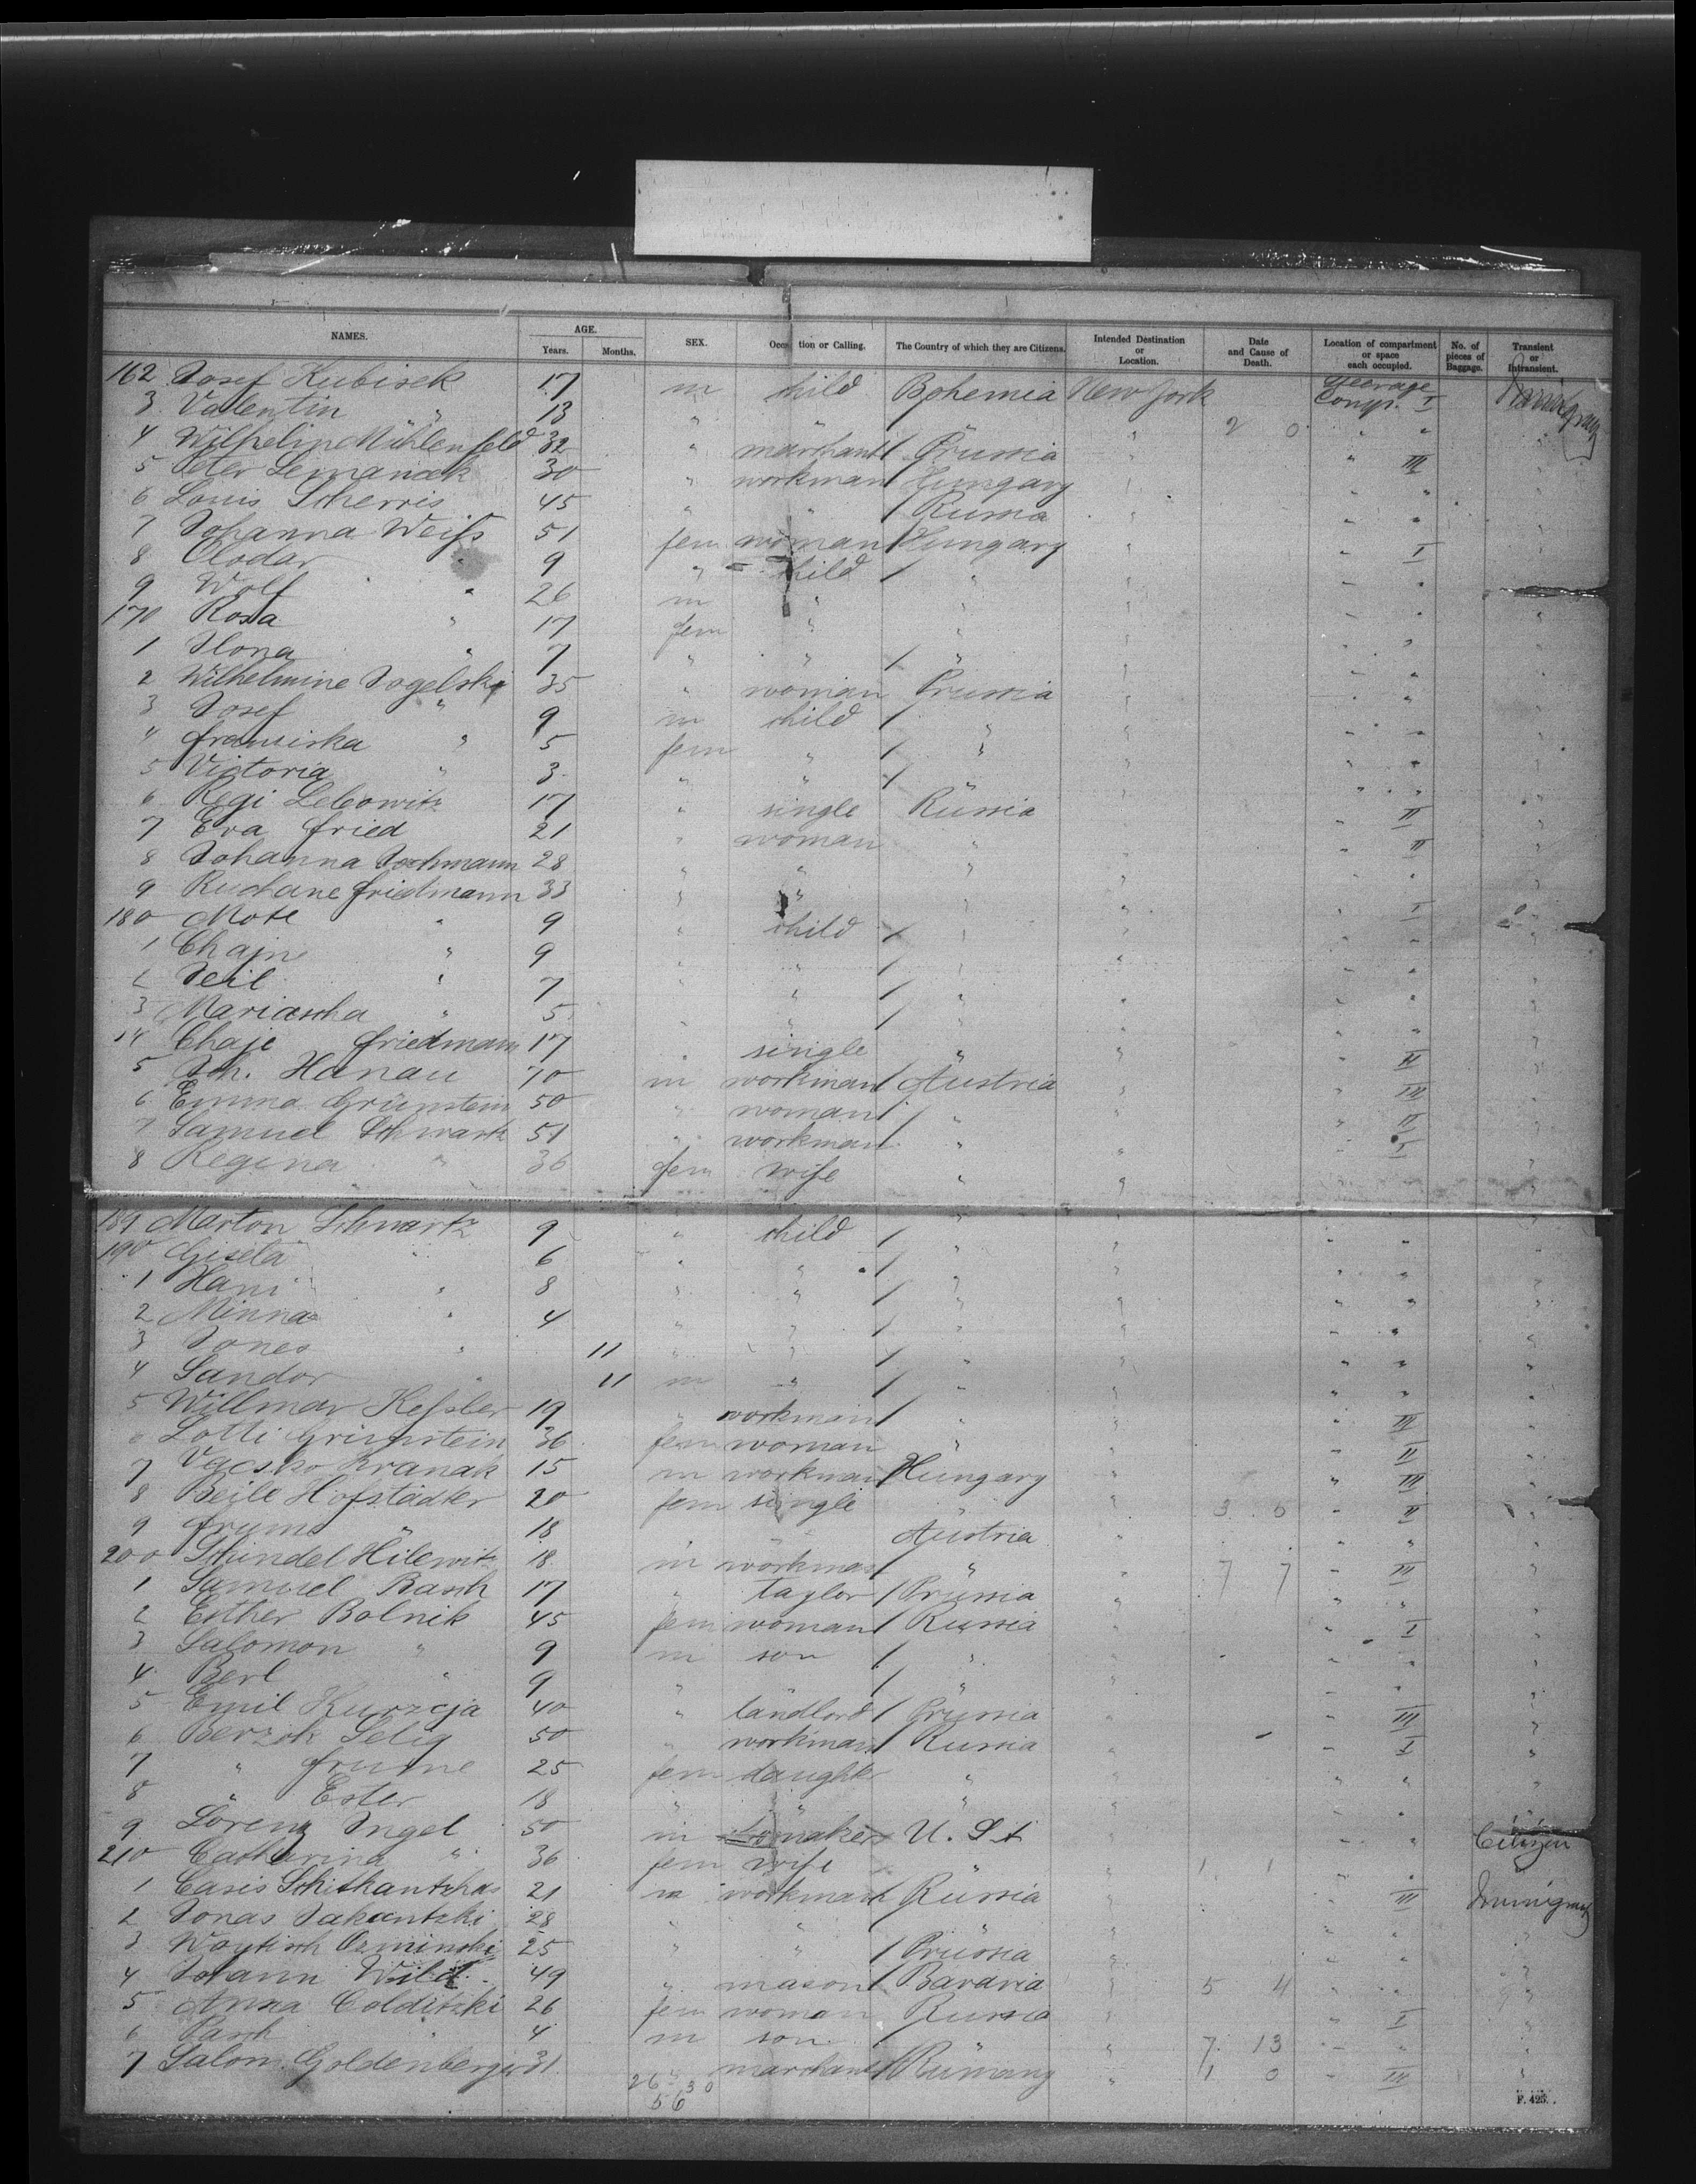 NAMES. AGE. Years. Months. SEX. Occu tion or Calling. The Country of which they are Citizens. Intended Destination or Location. Date and Cause of Death. Location of compartment or space each occupied. No. of pieces of Baggage. Transient or Intransient.
162 Josef Kubisek 17 m child Bohemia New York Steerage Comp. I
3 Valentin " 13 " " " " 2 0 " "
4 Wilhelm Mühlenfeld 32 " marchant / Prussia " " III
5 Peter Lemanek 30 " workman / Hungary " " "
6 Louis Scherris 45 " " / Russia " " "
7 Johanna Weifs 51 fem woman / Hungary " " I
8 " 9 " child / " " " "
9 Wolf " 26 m " " " " "
170 Rosa " 17 fem " " " " "
1 Ilona " 7 " " / " " " "
2 Wilhelmine Jogelski 35 " woman Prussia " " "
3 Josef " 9 m child / " " " "
4 Franziska " 5 fem " / " " " "
5 Victoria " 3 " " / " " " "
6 Regi Lebowitz 17 " single Russia " " II
7 Eva Fried 21 " woman " " " II
8 Johanna Jochmann 28 " " " " " "
9 Ruchane Friedmann 33 " " " " " I
180 Mote " 9 " child / " " " "
1 Chajne " 9 " " / " " " "
2 " 7 " " / " " " "
3 Mariascha " 5 " " / " " " "
14 Chaje Friedmann 17 " single " " " II
5 Joh. Hanau 70 m workman / Austria " " III
6 Emma Grünstein 50 " woman / " " " II
7 Samuel Schwartz 51 " workman / " " " I
8 Regina " 36 fem wife " "
189 Marton Schwartz 9 " child / " " " "
190 Gisela " 6 " " / " " " "
1 Hani " 8 " " / " " " "
2 Minna " 4 " " / " " " "
3 Jones " 11 " " / " " " "
4 Sandor " 11 m " / " " " "
5 Willmar Kefsler 19 " workman / " " " III
6 Lotti Grünstein 36 fem woman " " " II
7 Kranak 15 m workman / Hungary " " III
8 Beile Hofstädter 20 fem single " " 3 0 " II
9 Frume " 18 " " Austria " " "
200 Schindel Hilewitz 18 m workman / " " 7 7 " III
1 Samuel Basch 17 " taylor / Prussia " " "
2 Esther Bolnik 45 fem woman / Russia " " I
3 Salomon " 9 m son / " " " "
4 Berl " 9 " " / " " " "
5 Emil Kurzeja 40 " landlord / Prussia " " III
6 Berzik Selig 50 " workman / Russia " " I
7 " Frume 25 fem daughter " " " "
8 " Ester 18 " " " " " "
9 Lorenz Ingel 50 m U. St " " " Citizen
210 Catharina " 36 fem wife " " 1 1 "
1 Casis Schitkantzhas 21 m workman / Russia " " III Immigrant
2 Jonas Jakuntzki 28 " " " " " "
3 Woytisch Osminski 25 " " / Prussia " " "
4 Johann Wild 49 " mason / Bavaria " 5 4 " "
5 Anna Colditzki 26 fem woman Russia " " I
6 Pasch " 4 m son " " 7 13 " "
7 Salon. Goldenberger 31 " marchant / Rumany " 1 0 " III
26 30
56
F. 425.